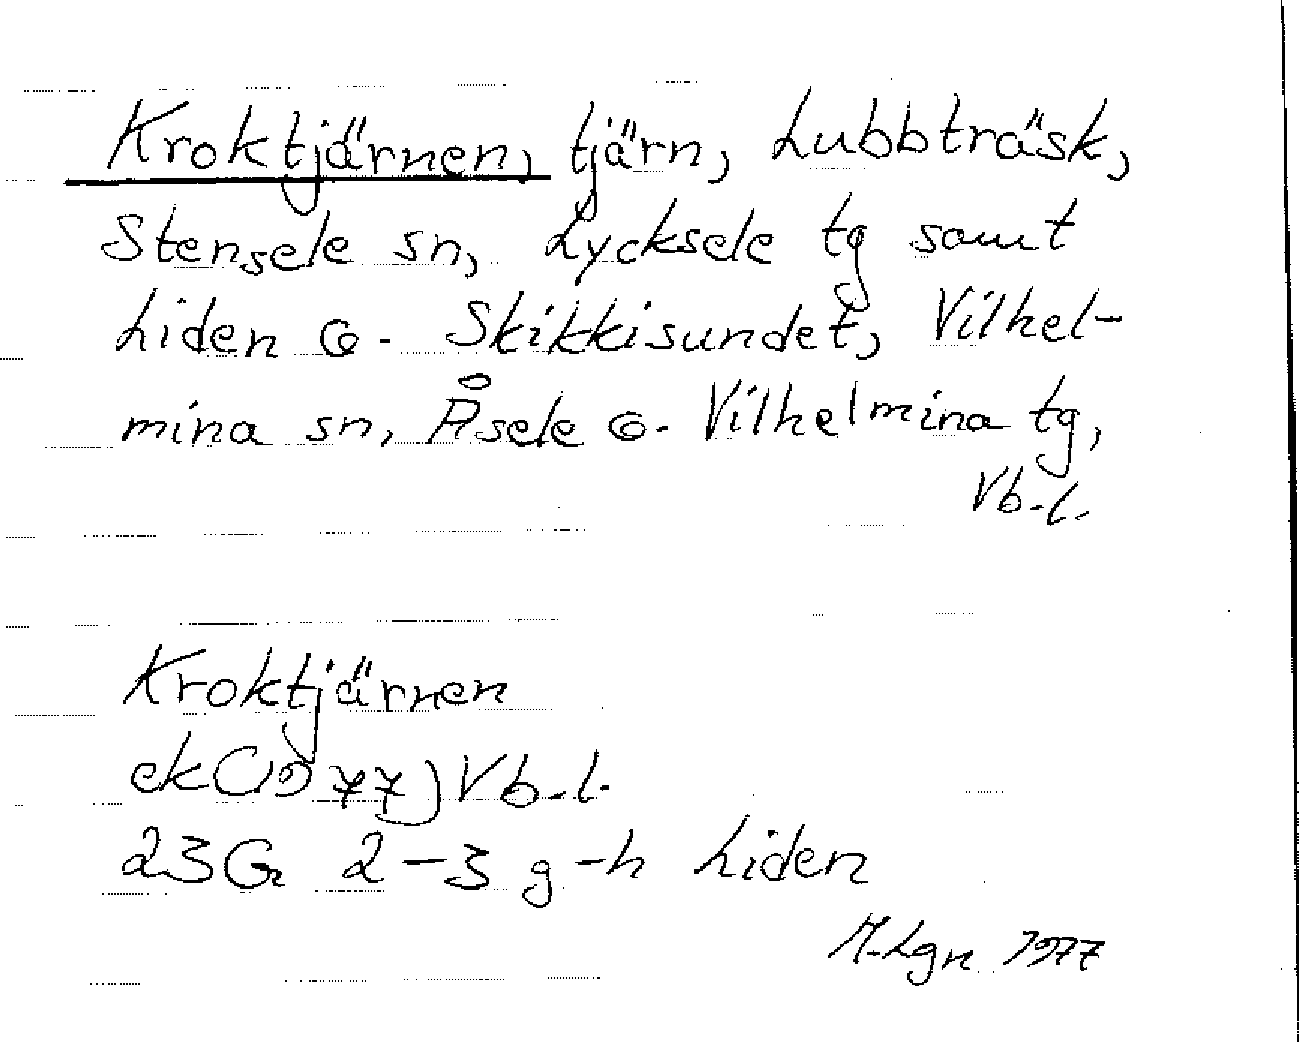 Kroktjärnen, tjärn, Lubbträsk,
Stensele sn, Lycksele tg samt
Liden o. Skikkisundet, Vilhel-
mina sn, Åsele o. Vilhelmina tg,
Vb.l.
Kroktjärnen
ek (1977) Vb.l.
23G 2-3 g-h Liden
1977